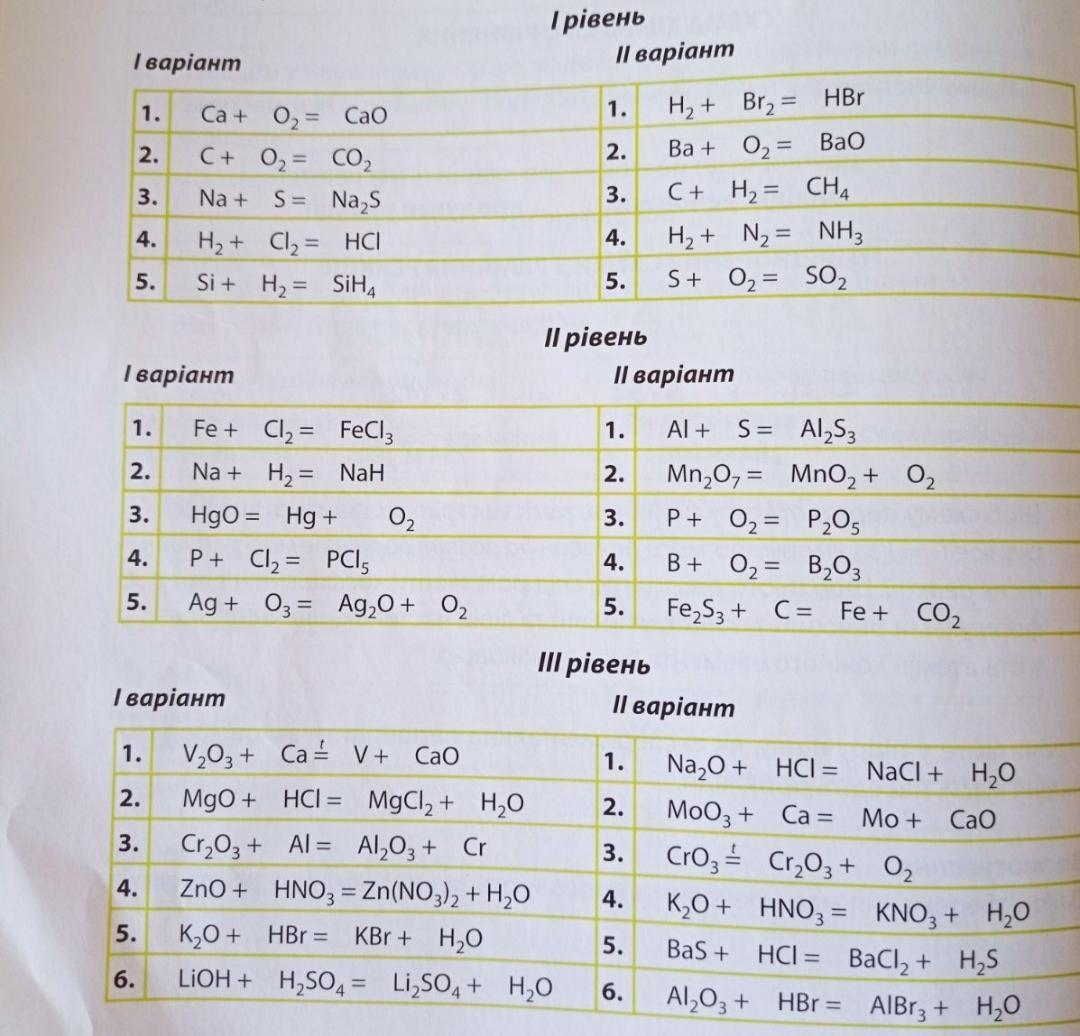 І рівень
І варіант
ІІ варіант
1. Ca + O₂ = CaO
2. C + O₂ = CO₂
3. Na + S = Na₂S
4. H₂ + Cl₂ = HCl
5. Si + H₂ = SiH₄
1. H₂ + Br₂ = HBr
2. Ba + O₂ = BaO
3. C + H₂ = CH₄
4. H₂ + N₂ = NH₃
5. S + O₂ = SO₂
ІІ рівень
І варіант
ІІ варіант
1. Fe + Cl₂ = FeCl₃
2. Na + H₂ = NaH
3. HgO = Hg + O₂
4. P + Cl₂ = PCl₅
5. Ag + O₃ = Ag₂O + O₂
1. Al + S = Al₂S₃
2. Mn₂O₇ = MnO₂ + O₂
3. P + O₂ = P₂O₅
4. B + O₂ = B₂O₃
5. Fe₂S₃ + C = Fe + CO₂
ІІІ рівень
І варіант
ІІ варіант
1. V₂O₃ + Ca =ᵗ V + CaO
2. MgO + HCl = MgCl₂ + H₂O
3. Cr₂O₃ + Al = Al₂O₃ + Cr
4. ZnO + HNO₃ = Zn(NO₃)₂ + H₂O
5. K₂O + HBr = KBr + H₂O
6. LiOH + H₂SO₄ = Li₂SO₄ + H₂O
1. Na₂O + HCl = NaCl + H₂O
2. MoO₃ + Ca = Mo + CaO
3. CrO₃ =ᵗ Cr₂O₃ + O₂
4. K₂O + HNO₃ = KNO₃ + H₂O
5. BaS + HCl = BaCl₂ + H₂S
6. Al₂O₃ + HBr = AlBr₃ + H₂O